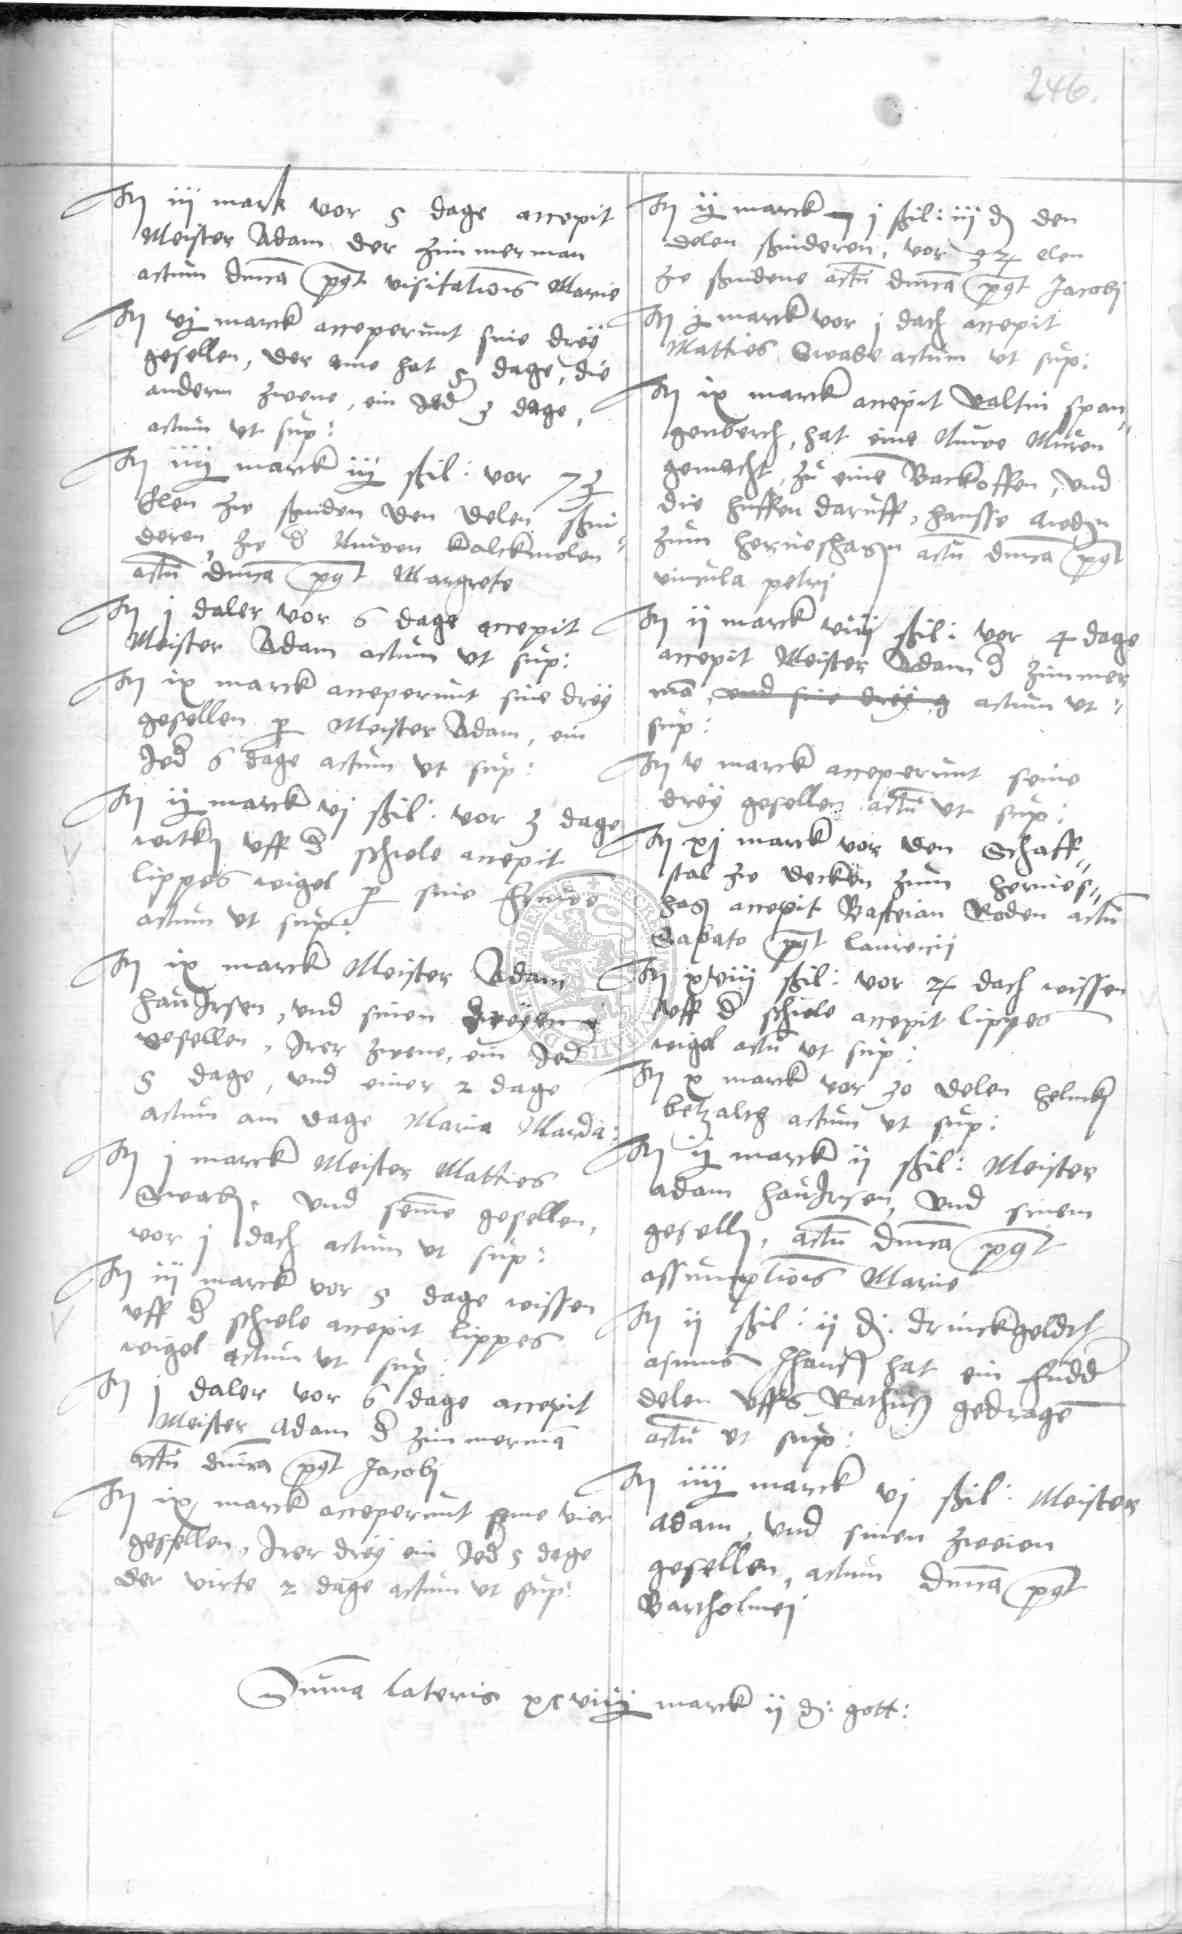 246.
It iij mark vor 5 dage accepit
Meister Adam der zimmerman
actum dnica pqt visitationis Marie
It vj marck acceperunt sine drey
gesellen, der eine hat 5 dage, die
andern zwene, ein Jed 3 dage,
actum ut sup:
It marck ßil: vor
Elen zw snиden den delen
deren, zw d Nuwen kalckmolen
actu dnica pqt Margrete
It j daler vor 6 dage accepit
Meister Adam actum ut sup:
It ix marck acceperunt sine drey
gesellen p Meister Adam, ein
Jed 6 dage actum ut sup:
It marck vj ßil: vor 3 dage
uff d schiele accepit
lippes weigel p sine
actum ut sup:
It ix marck Meister Adam
und sinen dreyen
gesellen, Jrer zwene, ein Jed
5 dage, und einer 2 dage
actum am dage Maria Magda:
It j marck Meister Matties
Swab, und gesellen,
vor j dach actum ut sup:
It iij marck vor 5 dage wissen
uff d schiele accepit lippes
weigel actum ut sup:
It j daler vor 6 dage accepit
Meister Adam d zimmerma
actu dnica pqt Jacobj
It ix marck acceperunt sine vier
gesellen, Jrer drey ein Jed 5 dage
der virte 2 dage actum ut sup:
It marck j ßil: iij d den
delen snideren, vor elen
zw snidene actu dnica pqt Jacobj
It marck vor j dach accepit
Matties Swabe actum ut sup:
It ix marck accepit Valtin span„
genberch, hat eine Nuwe Muren
gemacht, zu eine Backoffen, und
die daruff, hansse
zum herneshagen actu dnica pqt
vincula petrj
It ij marck ßil: vor 4 dage
accepit Meister Adam d zimmer
ma, und sine drey g actum ut
sup:
It v marck acceperunt seine
drey gesellen actu ut sup:
It xj marck vor den Schaff„
stal zw decken zum hernes„
hag accepit Bastian Roden actu
Sabato pqt laurencij
It ßil: vor dach wissen
uff d schiele accepit lippes
weigel actu ut sup:
It x marck vor 30 delen
betzalt actum ut sup:
It marck ij ßil: Meister
Adam und sinem
gesell, actu dnica pqt
assumptionis Marie
It ij ßil: ij d: drinckgeldt
hat ein
delen uffs Rathus gedrage
actu ut sup:
It marck vj ßil: Meister
Adam, und sinen zweien
gesellen, actum dnica pqt
Bartholmej
Suma lateris marck ij d: gott: